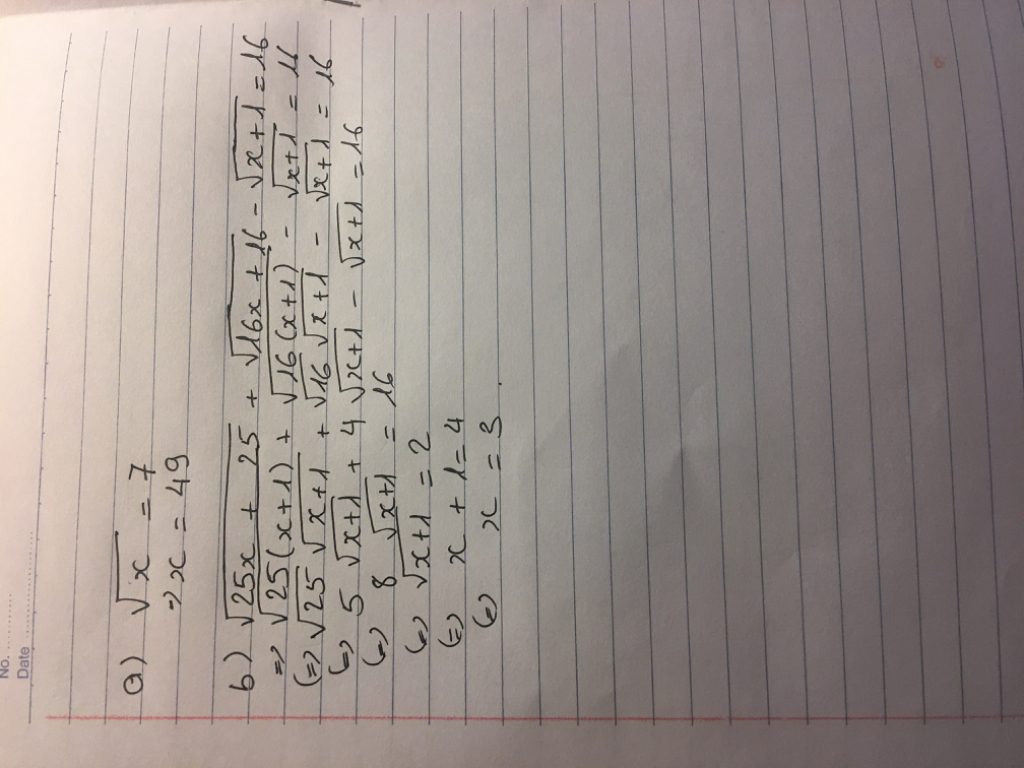 No. ..............
Date ..............
a) √x = 7
=> x = 49
b) √(25x + 25) + √(16x + 16) - √(x+1) = 16
=> √(25(x+1)) + √(16(x+1)) - √(x+1) = 16
(=) √25 √(x+1) + √16 √(x+1) - √(x+1) = 16
(=) 5 √(x+1) + 4 √(x+1) - √(x+1) = 16
(=) 8 √(x+1) = 16
(=) √(x+1) = 2
(=) x + 1 = 4
(=) x = 3.